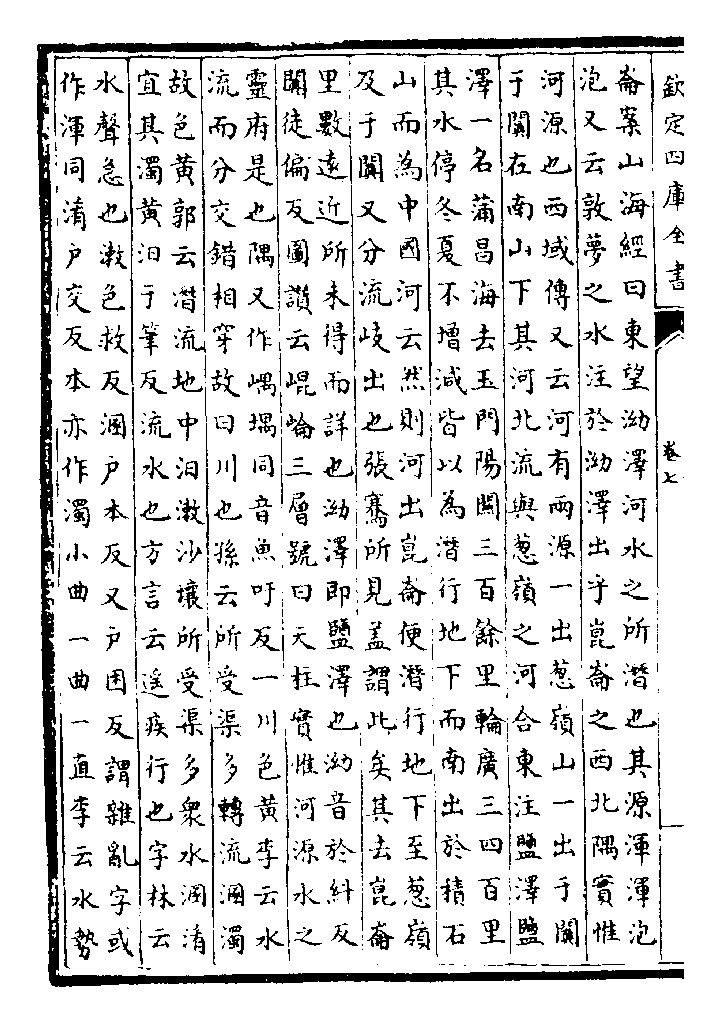 欽定四庫全書
卷七
崙案山海經曰東望泑澤河水之所潛也其源渾渾泡
泡又云敦薨之水注於泑澤出乎崑崙之西北隅實惟
河源也西域傳又云河有兩源一出葱嶺山一出于闐
于闐在南山下其河北流與葱嶺之河合東注鹽澤鹽
澤一名蒲昌海去玉門陽關三百餘里輪廣三四百里
其水停冬夏不增減皆以為潛行地下而南出於積石
山而為中國河云然則河出崑崙便潛行地下至葱嶺
及于闐又分流岐出也張騫所見蓋謂此矣其去崑崙
里數遠近所未得而詳也泑澤即鹽澤也泑音於糾反
闐徒偏反圖讚云崐崘三層號曰天柱實惟河源水之
靈府是也隅又作嵎堣同音魚吁反一川色黃李云水
流而分交錯相穿故曰川也孫云所受渠多轉流溷濁
故色黃郭云潛流地中汩漱沙壤所受渠多衆水溷淆
宜其濁黃汩于筆反流水也方言云遥疾行也字林云
水聲急也漱色救反溷户本反又户困反謂雜亂字或
作渾同淆户交反本亦作濁小曲一曲一直李云水勢